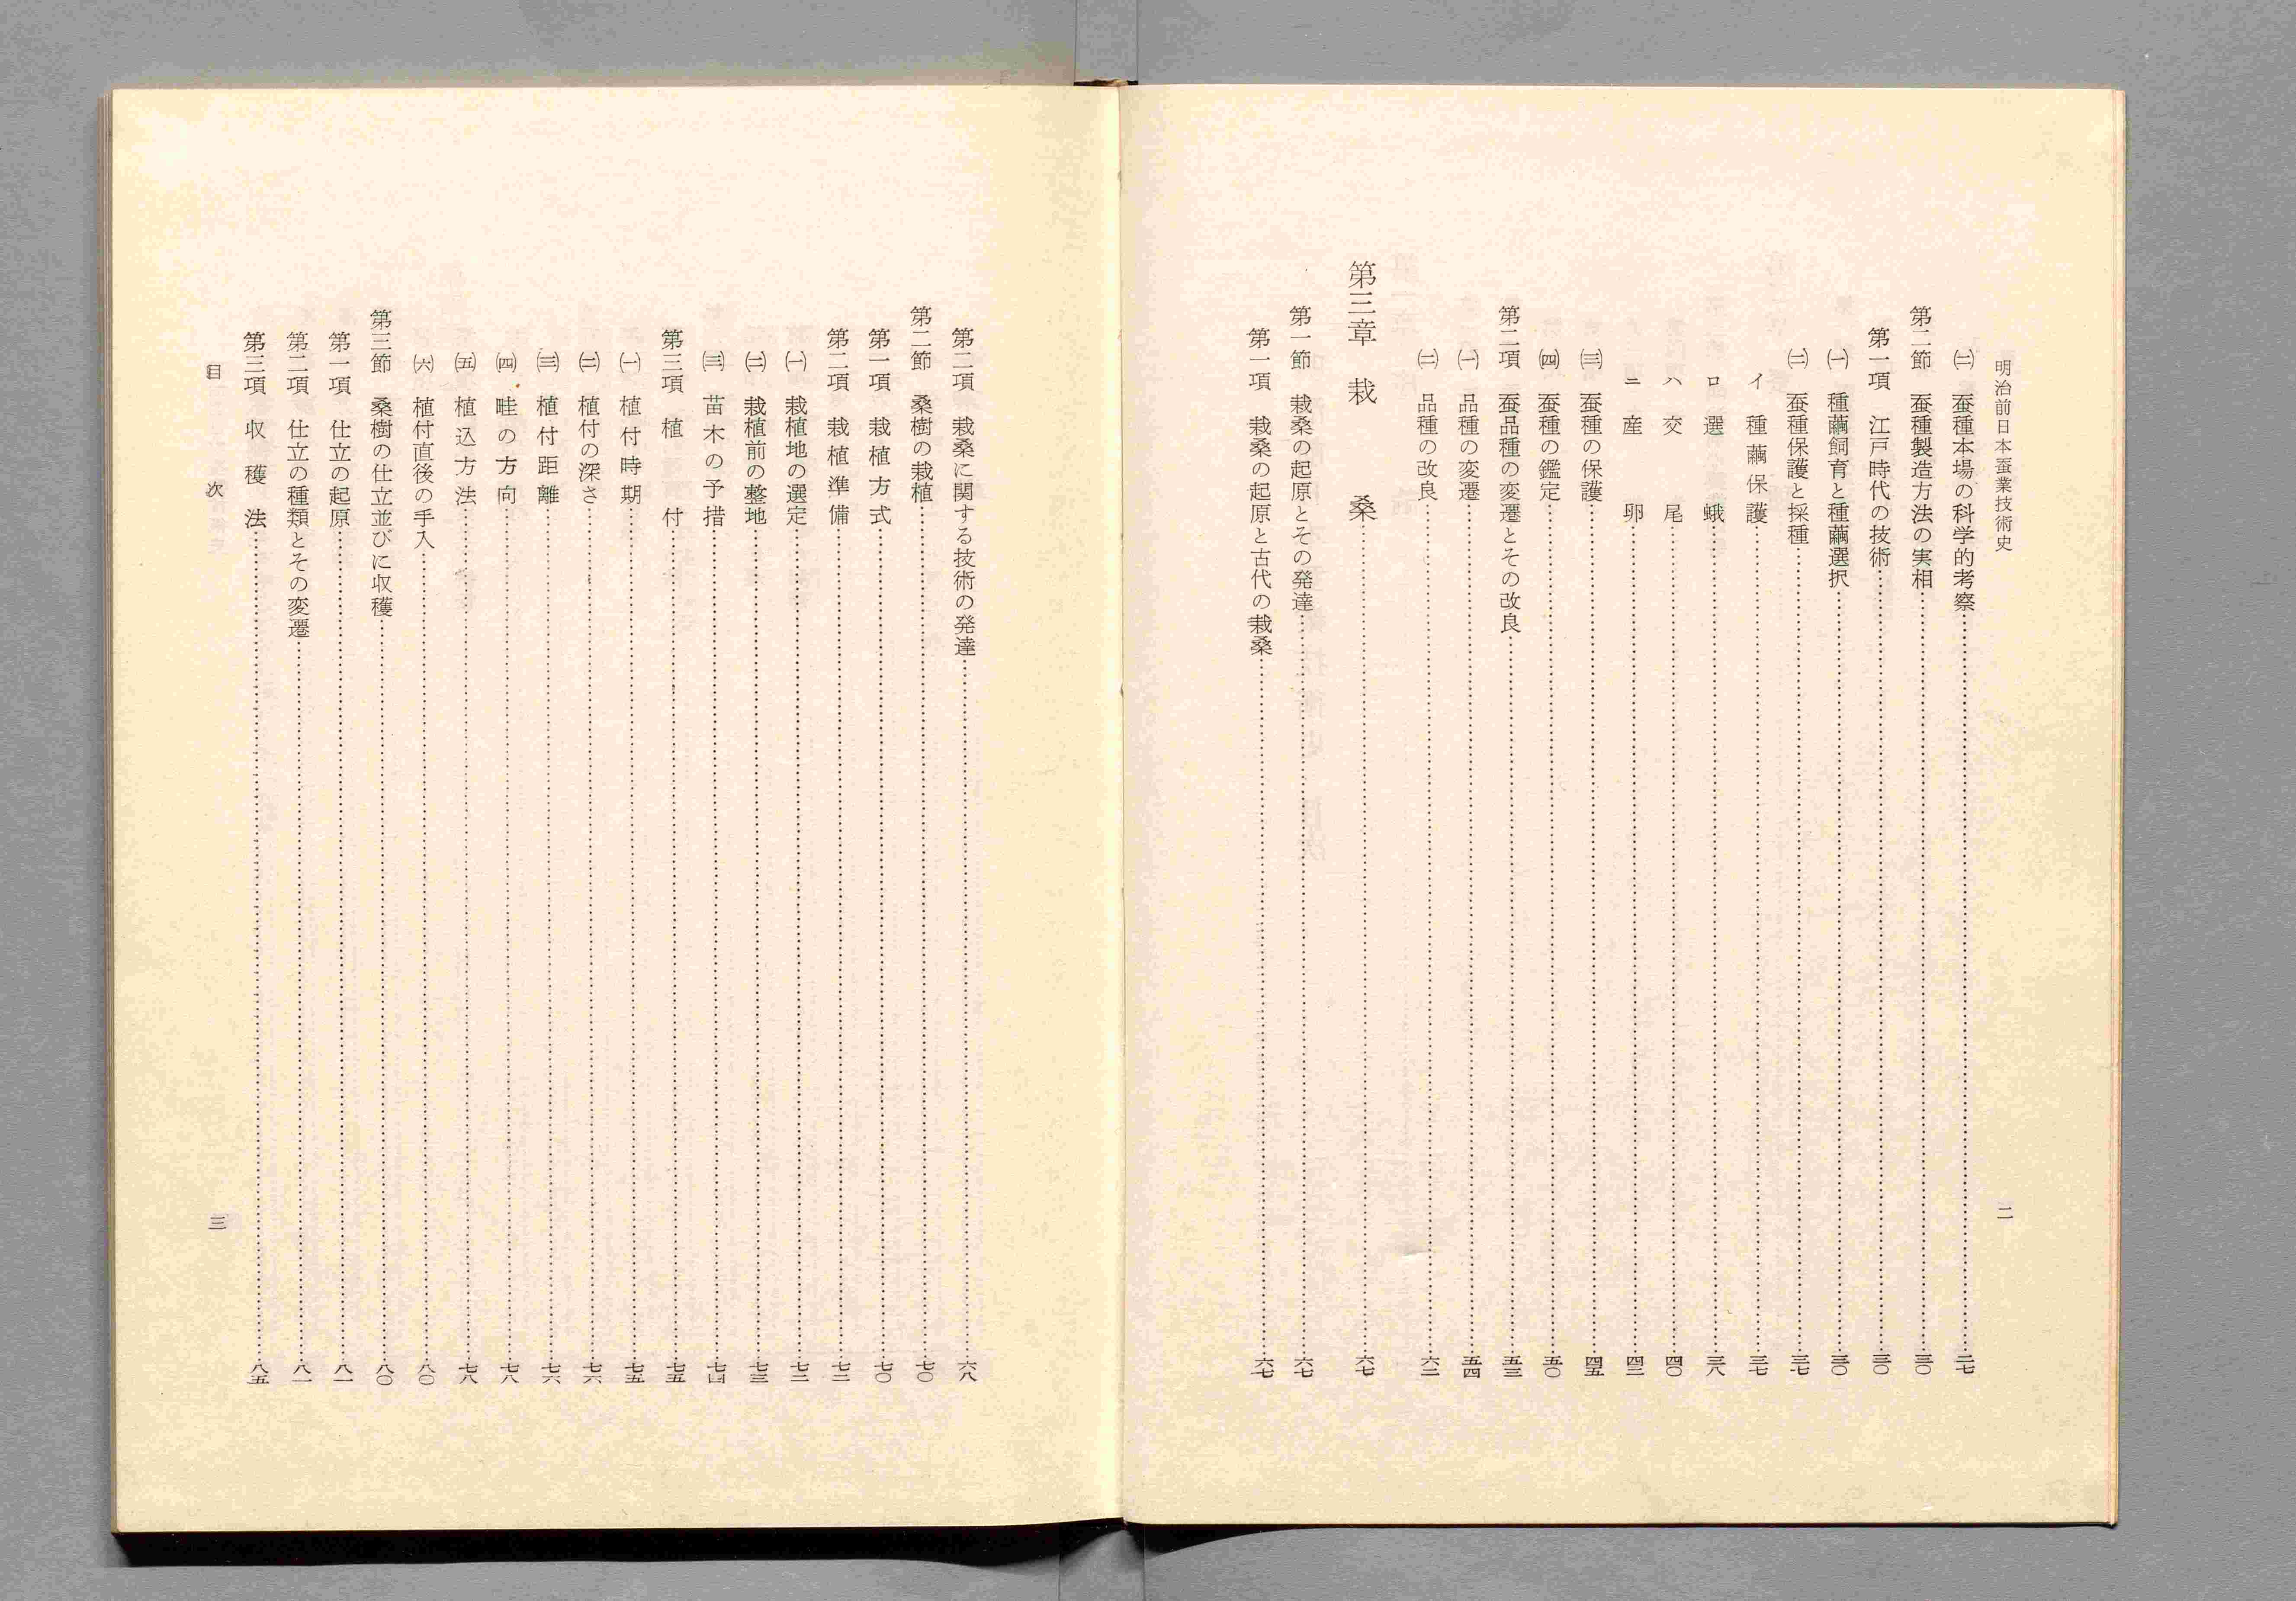 明治前日本蚕業技術史
二
㈡ 蚕種本場の科学的考察……二七
第二節 蚕種製造方法の実相……三〇
第一項 江戸時代の技術……三〇
㈠ 種繭飼育と種繭選択……三〇
㈡ 蚕種保護と採種……三七
イ 種繭保護……三七
ロ 選蛾……三八
ハ 交尾……四〇
ニ 産卵……四三
㈢ 蚕種の保護……四五
㈣ 蚕種の鑑定……五〇
第二項 蚕品種の変遷とその改良……五三
㈠ 品種の変遷……五四
㈡ 品種の改良……六二
第三章 栽桑……六七
第一節 栽桑の起原とその発達……六七
第一項 栽桑の起原と古代の栽桑……六七
第二項 栽桑に関する技術の発達……六八
第二節 桑樹の栽植……七〇
第一項 栽植方式……七〇
第二項 栽植準備……七二
㈠ 栽植地の選定……七二
㈡ 栽植前の整地……七三
㈢ 苗木の予措……七四
第三項 植付……七五
㈠ 植付時期……七五
㈡ 植付の深さ……七六
㈢ 植付距離……七六
㈣ 畦の方向……七八
㈤ 植込方法……七八
㈥ 植付直後の手入……八〇
第三節 桑樹の仕立並びに収穫……八〇
第一項 仕立の起原……八一
第二項 仕立の種類とその変遷……八一
第三項 収穫法……八五
目次
三